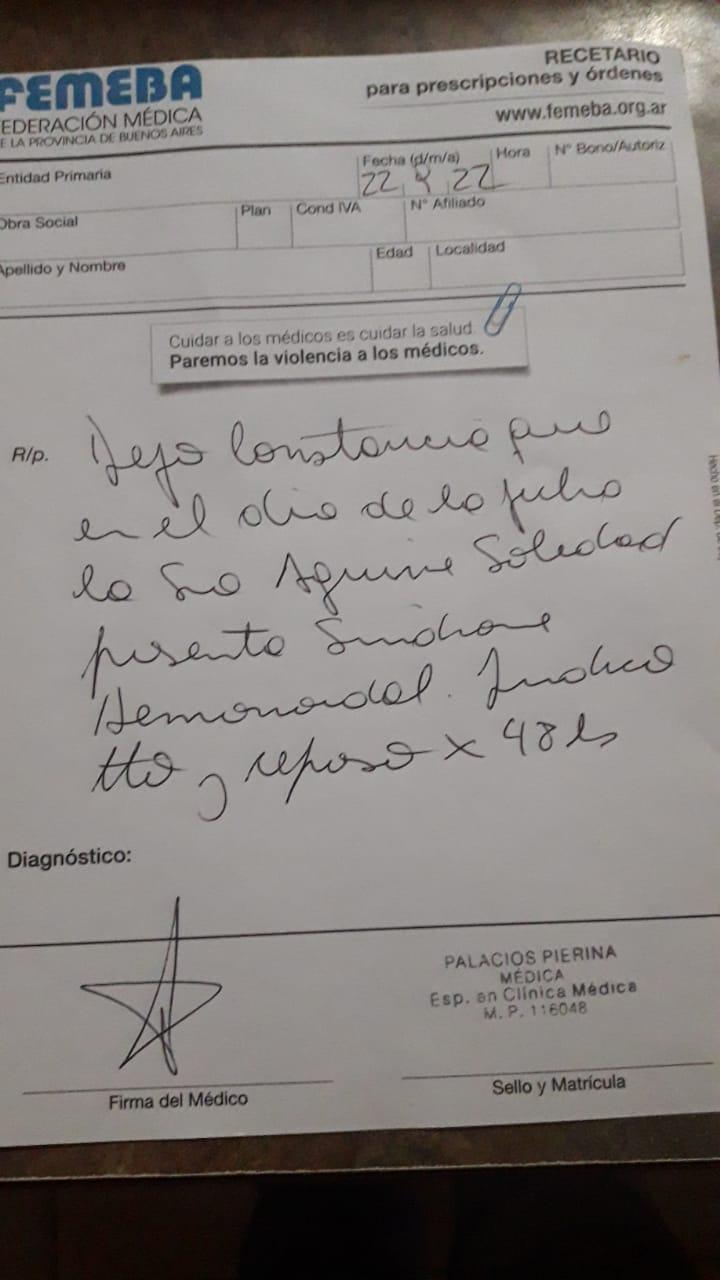 FEMEBA
FEDERACIÓN MÉDICA
DE LA PROVINCIA DE BUENOS AIRES
RECETARIO
para prescripciones y órdenes
www.femeba.org.ar
Entidad Primaria
Fecha (d/m/a)
Hora
N° Bono/Autoriz
22 9 22
Obra Social
Plan
Cond IVA
N° Afiliado
Apellido y Nombre
Edad
Localidad
Cuidar a los médicos es cuidar la salud.
Paremos la violencia a los médicos.
R/p.
Dejo Constancia que
en el dia de la fecha
la Sra Aguirre Soledad
presenta Sindrome
Hemorroidal. Indico
tto y reposo x 48 hs
Diagnóstico:
PALACIOS PIERINA
MÉDICA
Esp. en Clínica Médica
M. P. 116048
Firma del Médico
Sello y Matrícula